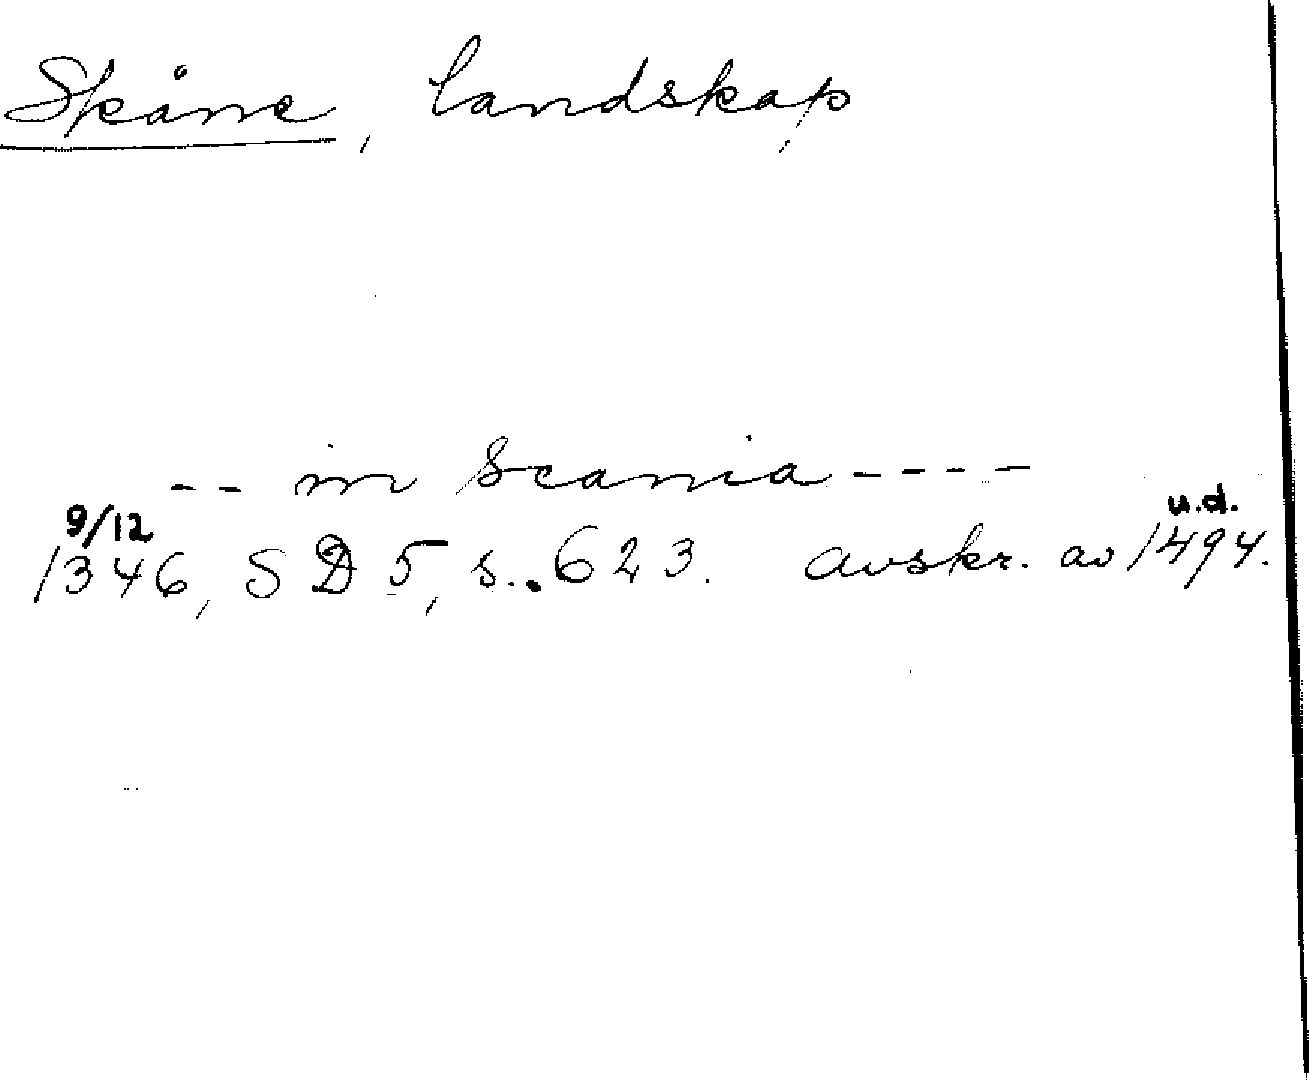 Skåne, landskap
-- in Scania ----
9/12 u.d.
1346, SD 5, s. 623. avskr. av 1494.